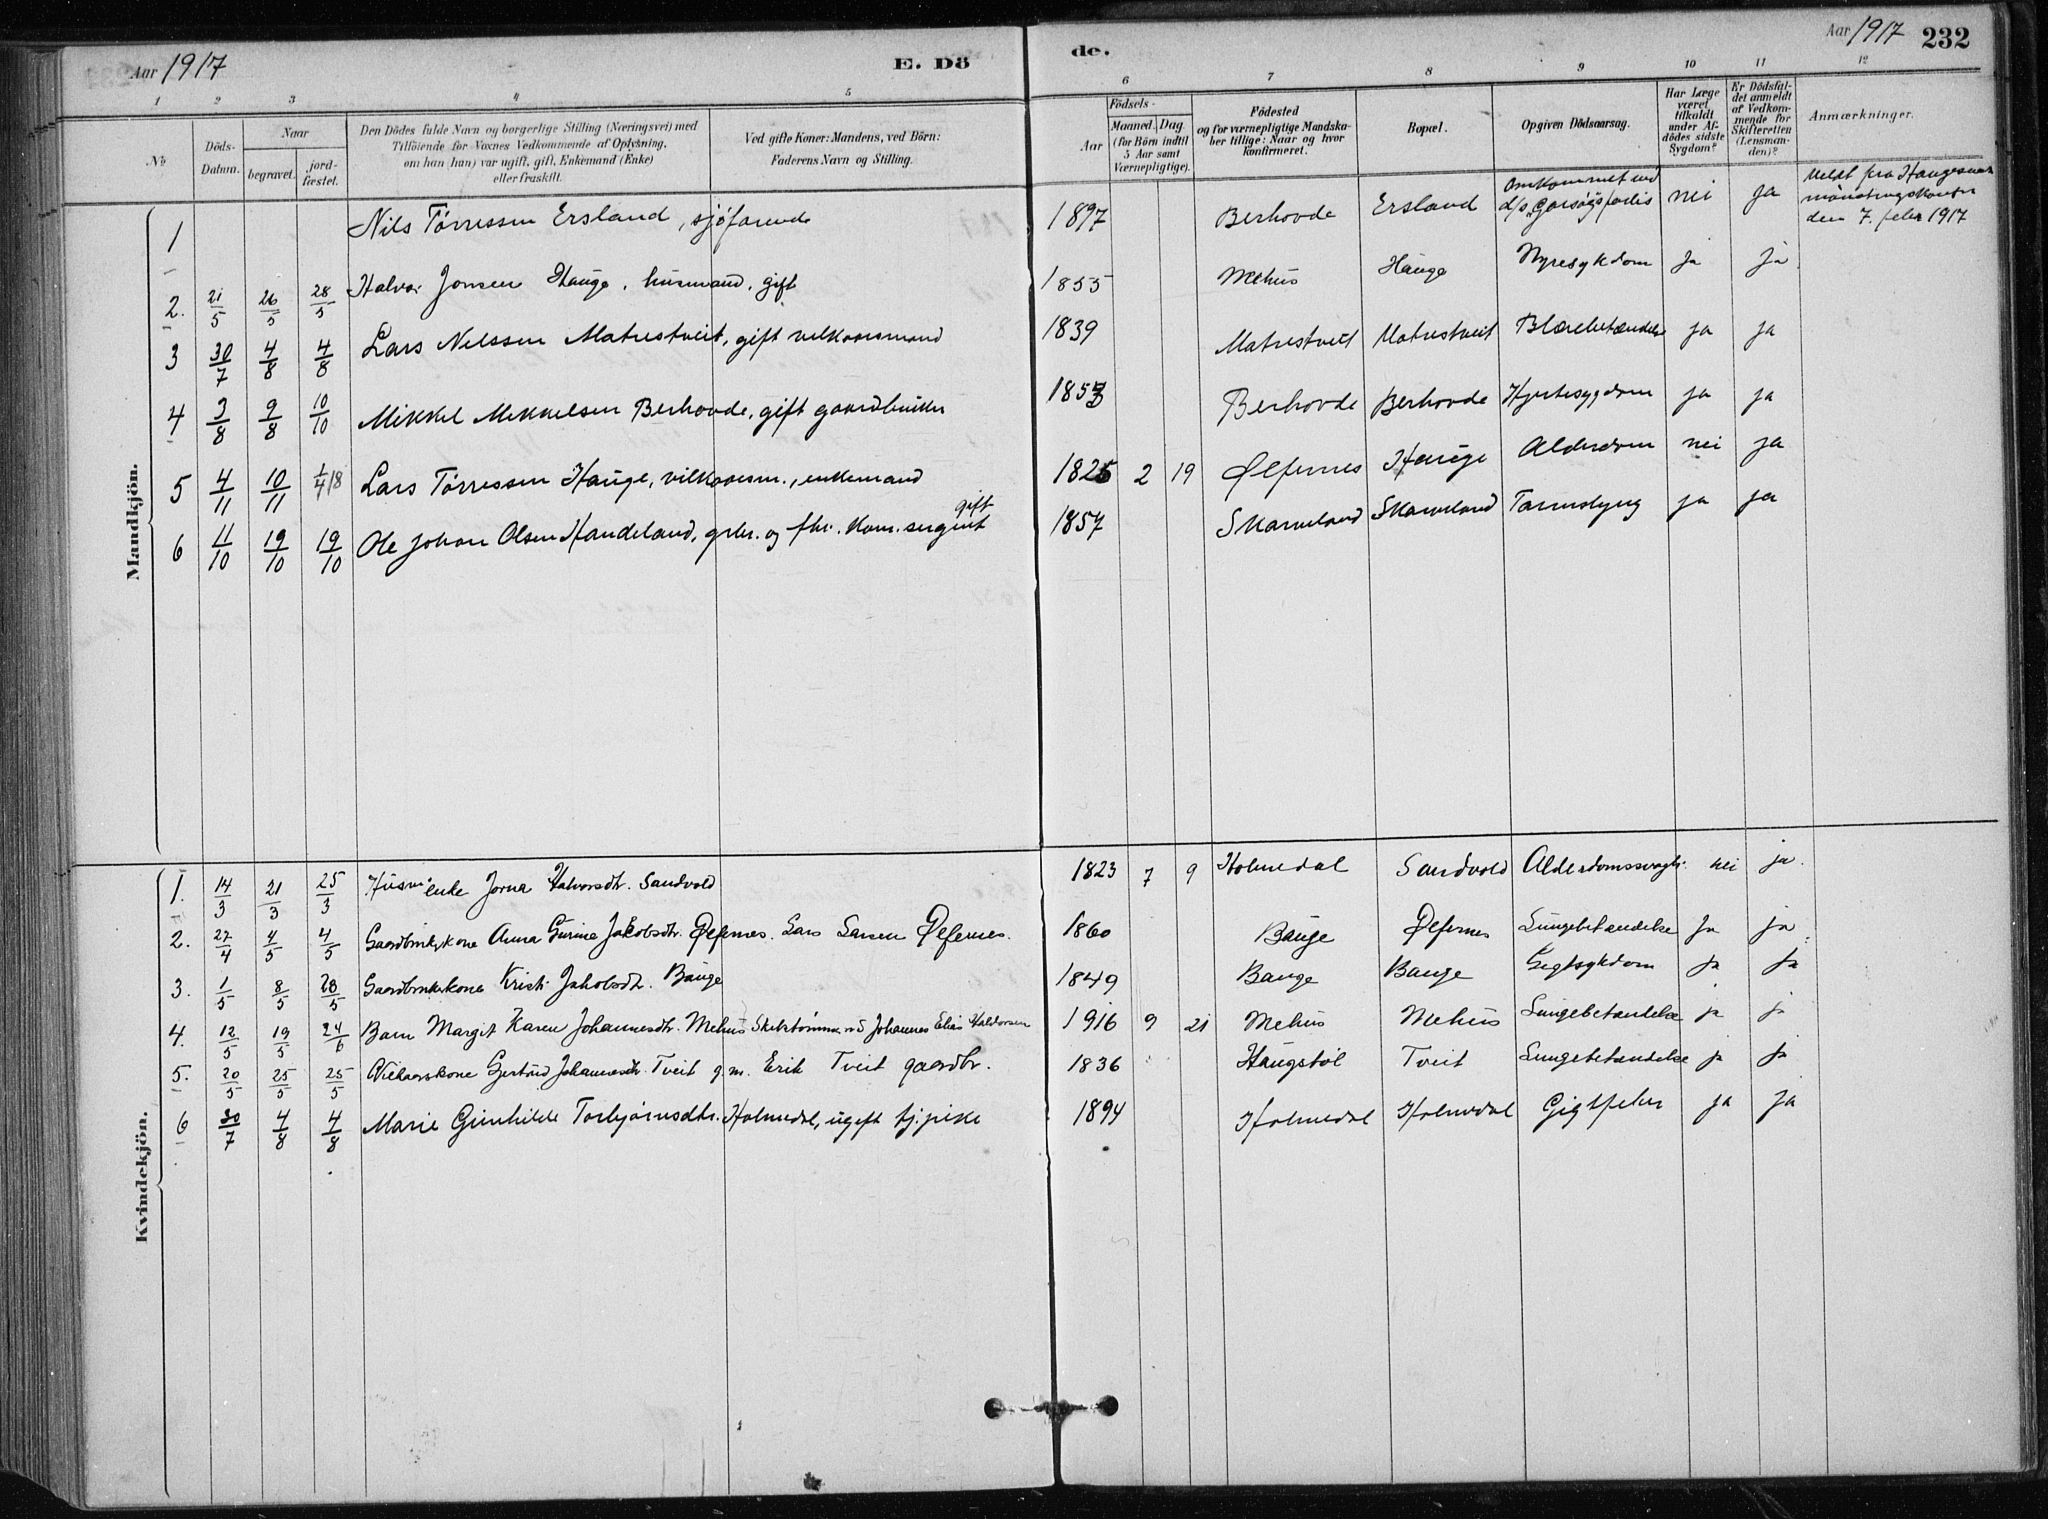 Aar 1917
E. Dö
de.
Aar 1917 232
1 2 3 4 5 6 7 8 9 10 11 12
No
Döds-Datum.
Naar
begravet.
jord-fæstet.
Den Dödes fulde Navn og borgerlige Stilling (Næringsvei) med
Tilföiende for Voxnes Vedkommende af Oplysning,
om han (hun) var ugift, gift, Enkemand (Enke)
eller fraskilt.
Ved gifte Koner: Mandens, ved Börn:
Faderens Navn og Stilling.
Födsels-
Aar
Maaned. Dag.
(for Börn indtil
5 Aar samt
Værnepligtige).
Födested
og for værnepligtige Mandska-
ber tillige: Naar og hvor
konfirmeret.
Bopæl.
Opgiven Dödsaarsag.
Har Læge
været
tilkaldt
under Af-
dödes sidste
Sygdom?
Er Dödsfal-
det anmeldt
af Vedkom-
mende for
Skifteretten
(Lensman-
den)?
Anmærkninger.
Mandkjön.
1 Nils Tørressen Ersland, sjøfarende 1897 Berhovde Ersland Omkommet ved d/s nei ja Meldt fra Haugesund mønstringskontor den 7. febr 1917
2. 21/5 26/5 28/5 Halvor Jonsen Hauge, husmand, gift 1855 Mehus Hauge Nyresykdom ja ja
3 30/7 4/8 4/8 Lars Nelssen Matrestveit, gift vilkaarsmand 1839 Matrestveit Matrestveit Blærebetændelse ja ja
4 3/8 9/8 10/10 Mikkel Mikkelsen Berhovde, gift gaardbruker 1853 Berhovde Berhovde Hjertesygdom ja ja
5 4/11 10/11 1/4 18 Lars Tørressen Hauge, vilkaarsm., enkemand 1825 2 19 Ølfernes Hauge Alderdom nei ja
6 11/10 19/10 19/10 Ole Johan Olsen Handeland, grbr. og fhv. kom. sergent gift 1857 Skarveland Skarveland Tarmslyng ja ja
Kvindekjön.
1. 14/3 21/3 25/3 Husm. enke Jorna Halvorsdtr. Sandvold 1823 7 9 Holmedal Sandvold Alderdomssvagh. nei ja
2. 27/4 4/5 4/5 Gaardbrukskone Anna Gurine Jakobsdtr. Ølfernes. Lars Larsen Ølfernes. 1860 Bauge Ølfernes Lungebetændelse ja ja
3. 1/5 8/5 28/5 Gaardbrukskone Kristi Jakobsdtr. Bauge 1849 Bauge Bauge Gigtsykdom ja ja
4. 12/5 19/5 24/6 Barn Margit Karen Johannesdtr. Mehus Johannes Elias Haldorsen 1916 9 21 Mehus Mehus Lungebetændelse ja ja
5. 20/5 25/5 25/5 Vilkaarskone Gjertrud Johannesdtr. Tveit g.m. Erik Tveit gaardbr. 1836 Haugstøl Tveit Lungebetændelse ja ja
6 30/7 4/8 4/8 Marie Gunhilde Torbjørnsdtr. Holmedal, ugift tj. pike 1894 Holmedal Holmedal Gigtfeber ja ja